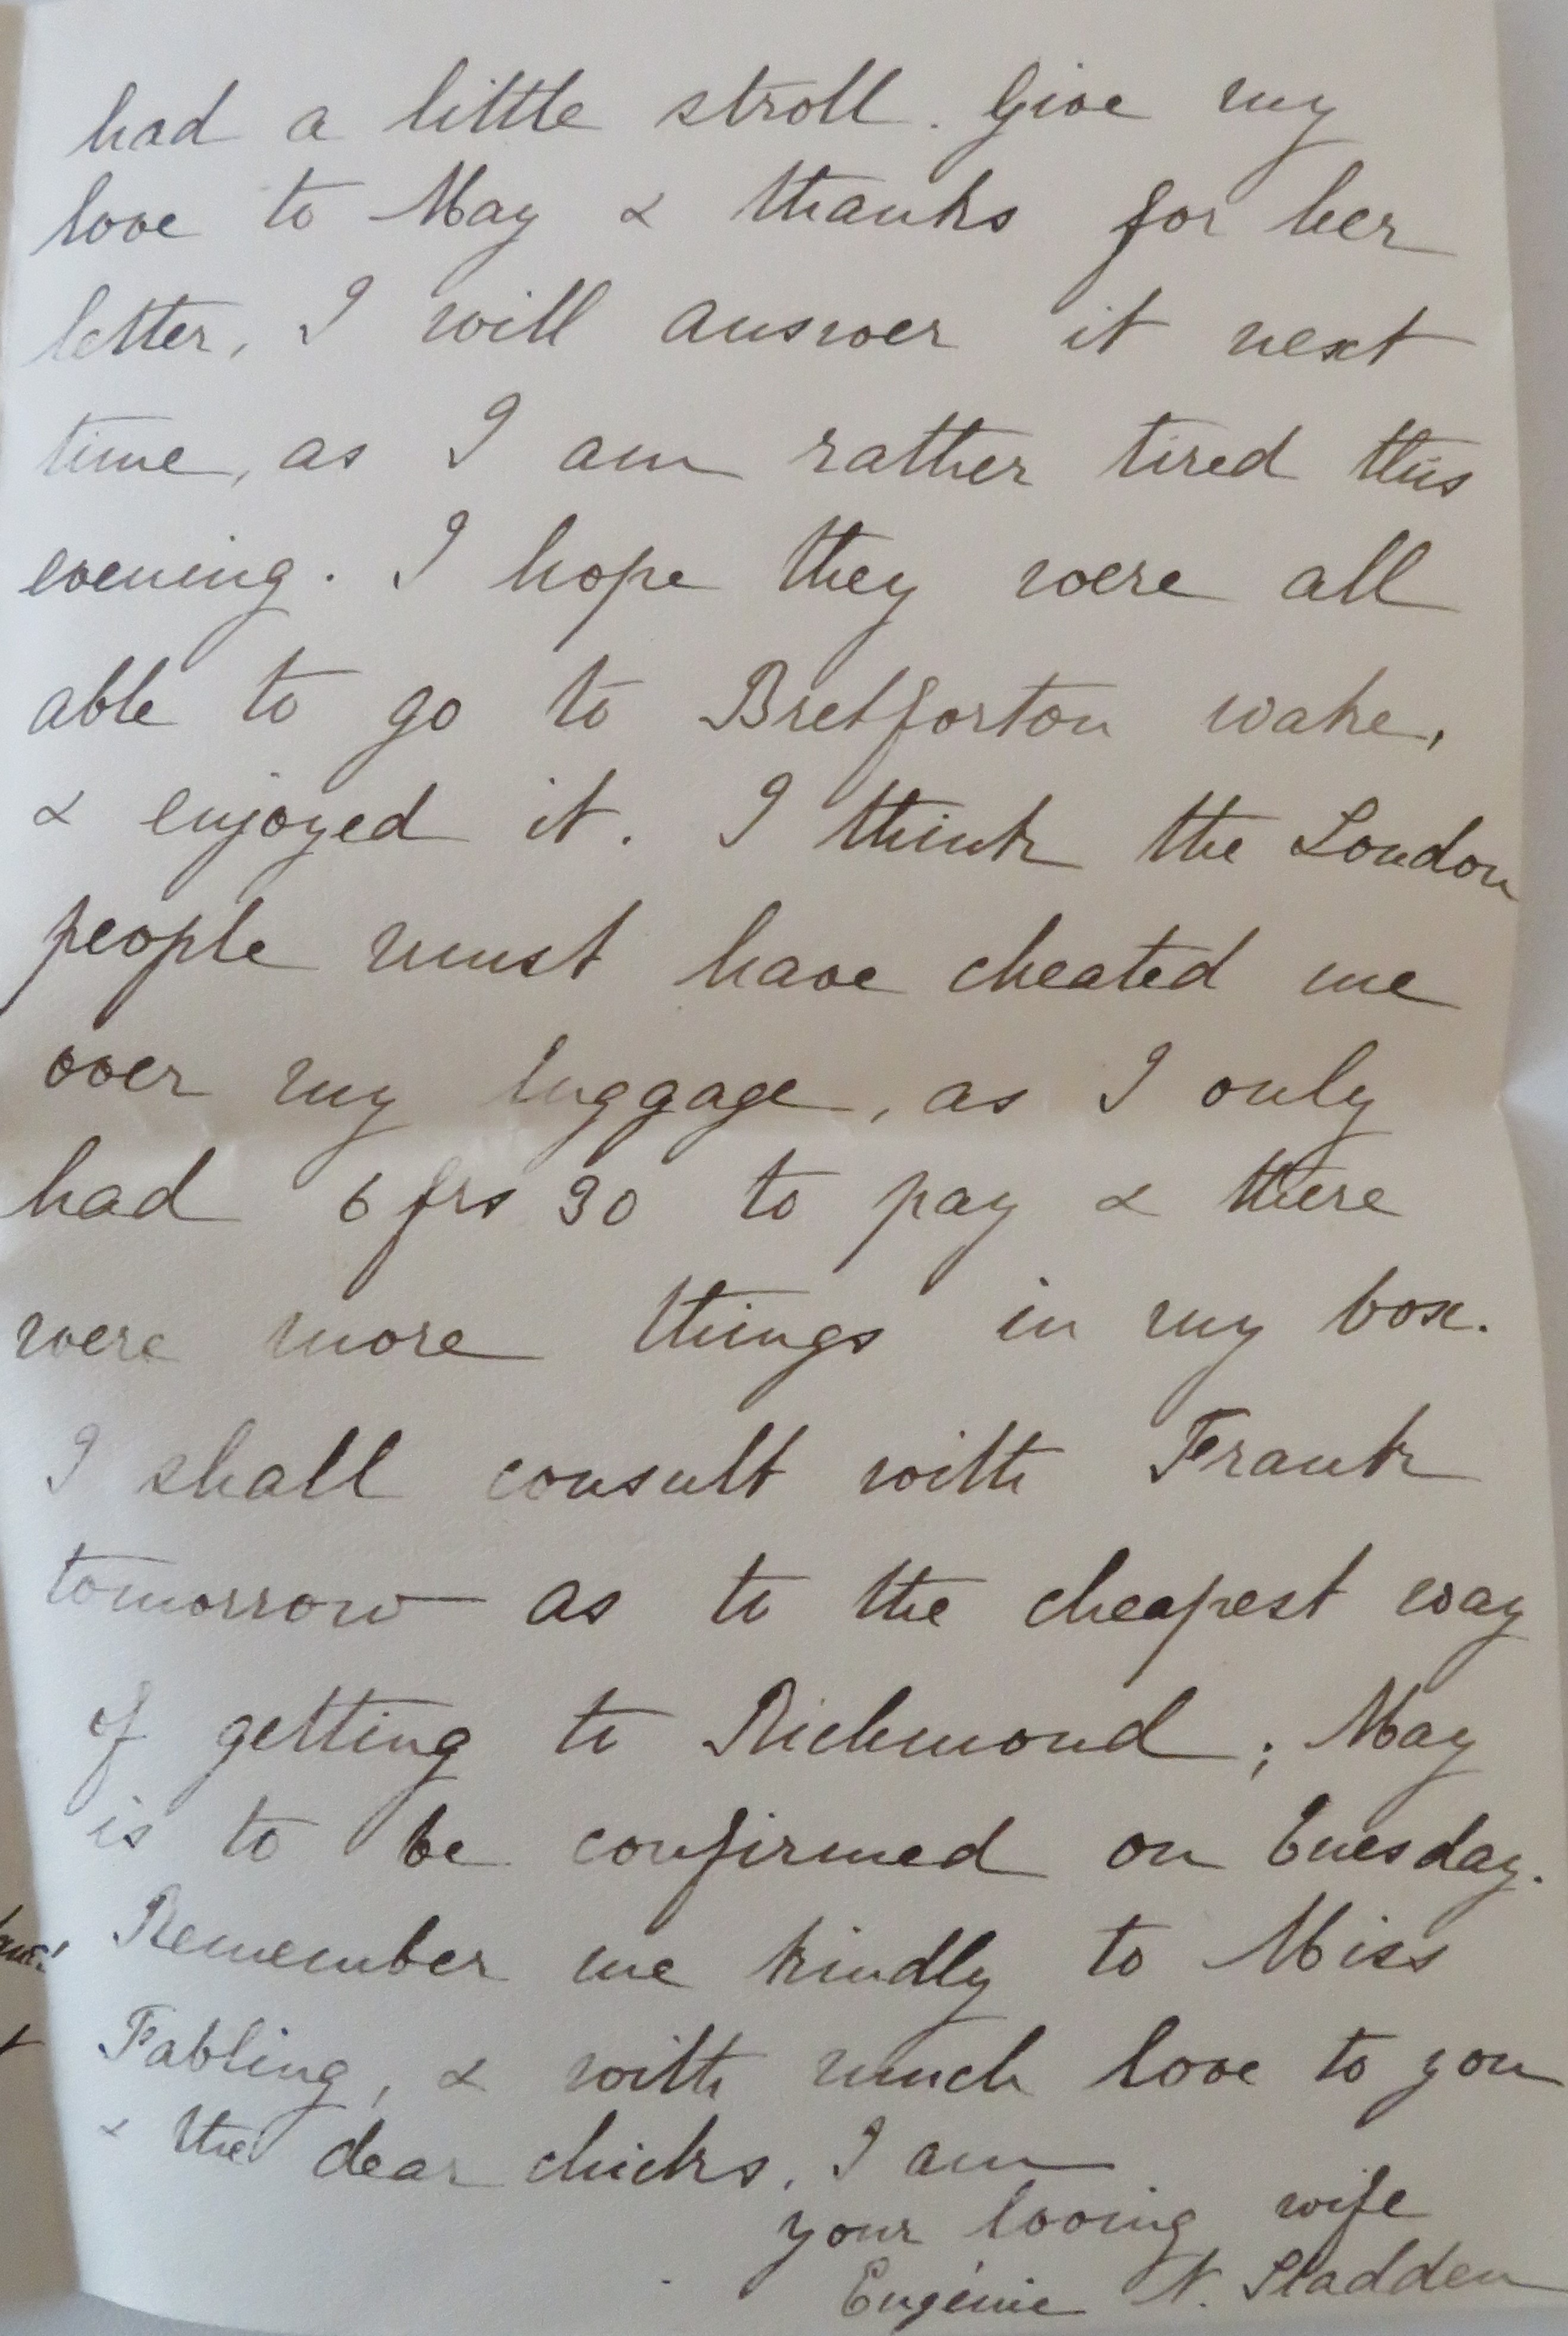 had a little stroll. Give my
love to May & thanks for her
letter, I will answer it next
time, as I am rather tired this
evening. I hope they were all
able to go to Bretforton wake,
& enjoyed it. I think the London
people must have cheated me
over my luggage, as I only
had 6 frs 90 to pay & there
were more things in my box.
I shall consult with Frank
tomorrow as to the cheapest way
of getting to Richmond; May
is to be confirmed on Tuesday.
Remember me kindly to Miss
Fabling, & with much love to you
& the dear chicks, I am
your loving wife
Eugénie N. Sladden